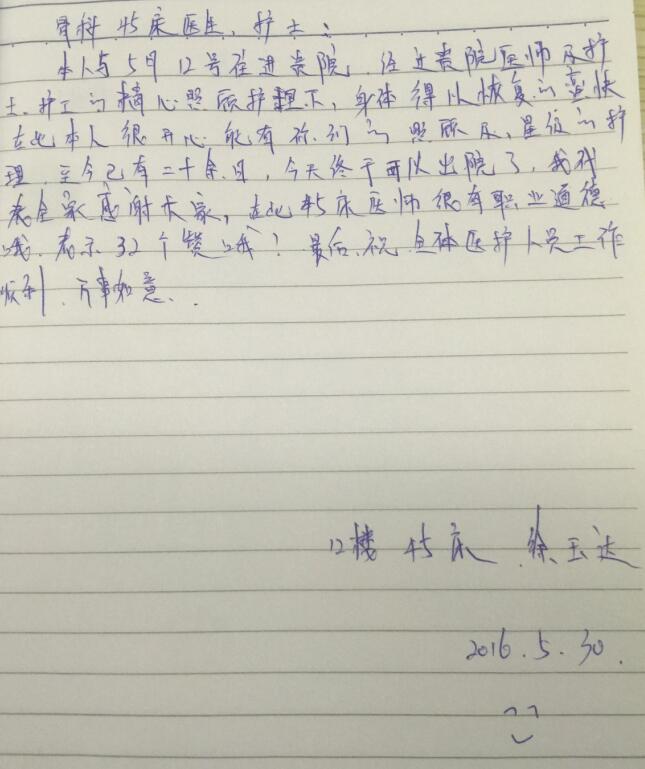 骨科 45床医生、护士：
本人与5月12号住进贵院，经过贵院医师及护
士、护工的精心照顾护理下，身体得以恢复的蛮快
在此本人很开心能有你们的照顾及、星级的护
理，至今已有二十余日，今天终于可以出院了，我代
表全家感谢大家，在此45床医师很有职业道德
哦，表示32个赞哦！最后，祝全体医护人员工作
顺利、万事如意．
12楼 45床 徐玉达
2016.5.30.